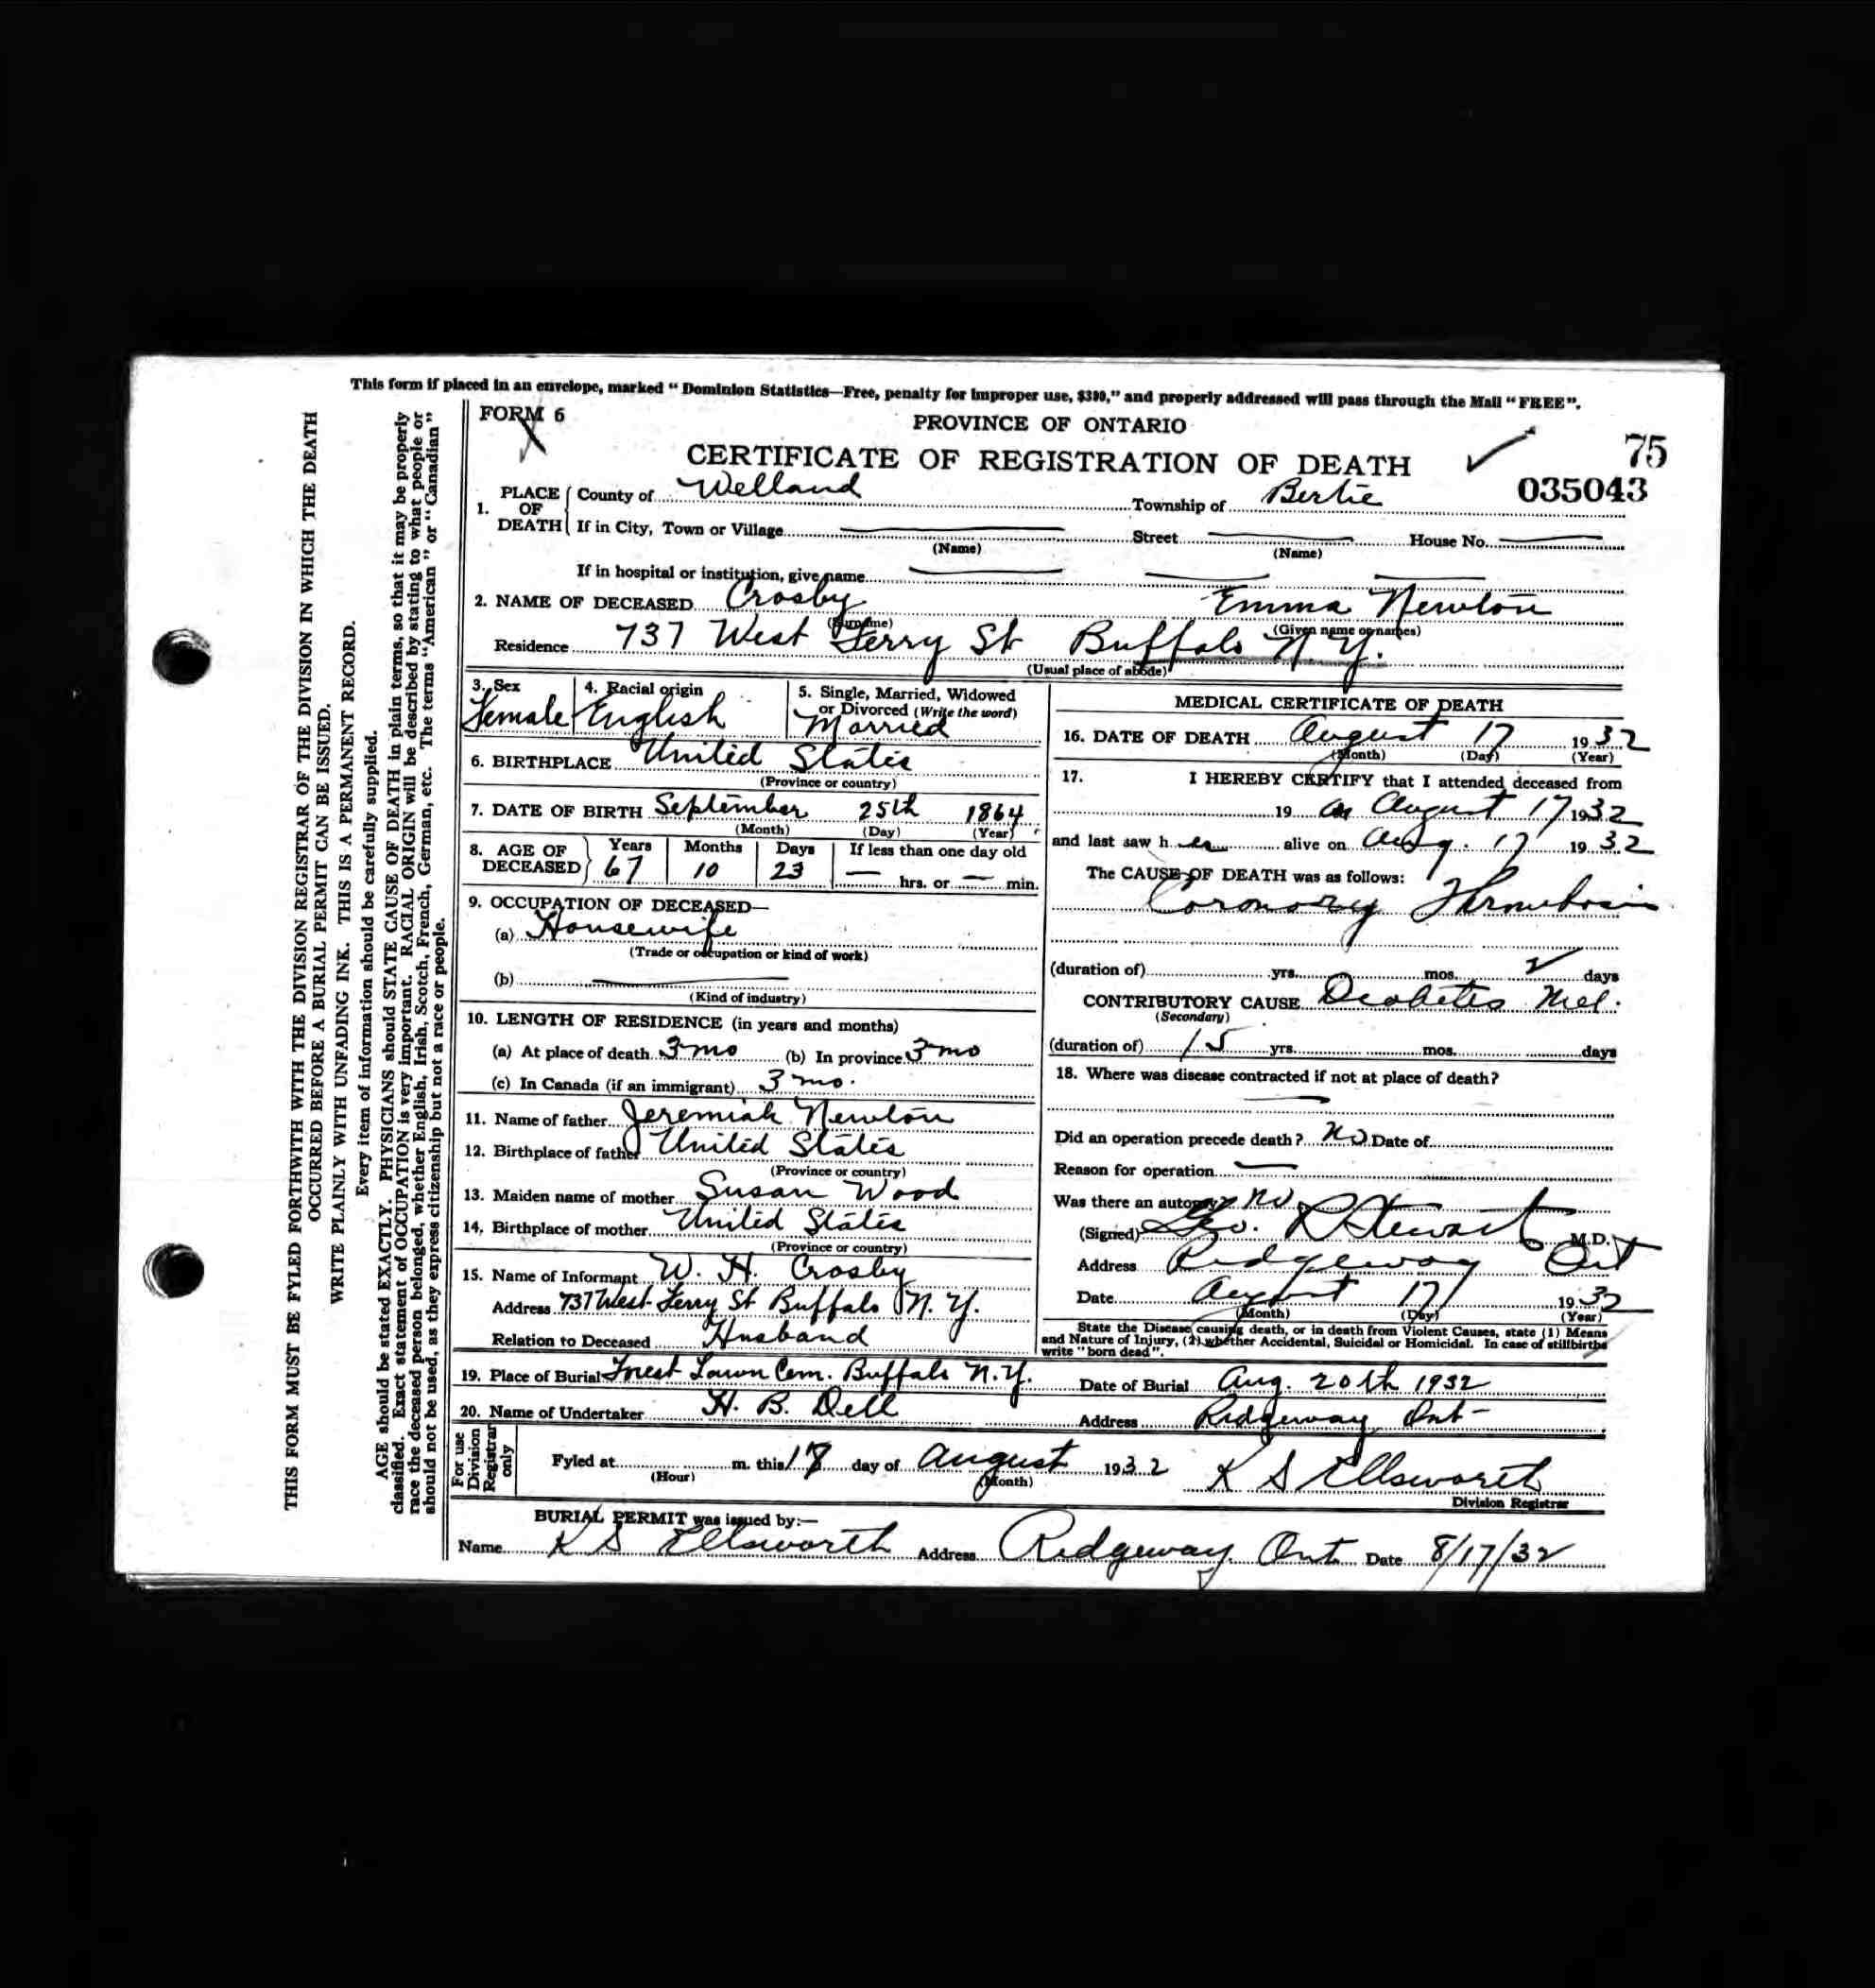 This form if placed in an envelope, marked "Dominion Statistics—Free, penalty for improper use, $300," and properly addressed will pass through the Mail "FREE".
FORM 6
PROVINCE OF ONTARIO
75
CERTIFICATE OF REGISTRATION OF DEATH
035043
1. PLACE OF DEATH County of Welland Township of Bertie
If in City, Town or Village Street House No.
(Name) (Name)
If in hospital or institution, give name
2. NAME OF DECEASED Crosby Emma Newton
(Surname) (Given name or names)
Residence 737 West Ferry St Buffalo N.Y.
(Usual place of abode)
3. Sex Female
4. Racial origin English
5. Single, Married, Widowed or Divorced (Write the word) Married
6. BIRTHPLACE United States
(Province or country)
7. DATE OF BIRTH September 25th 1864
(Month) (Day) (Year)
8. AGE OF DECEASED Years 67 Months 10 Days 23 If less than one day old
hrs. or min.
9. OCCUPATION OF DECEASED—
(a) Housewife
(Trade or occupation or kind of work)
(b)
(Kind of industry)
10. LENGTH OF RESIDENCE (in years and months)
(a) At place of death 3 mo (b) In province 3 mo
(c) In Canada (if an immigrant) 3 mo.
11. Name of father Jeremiah Newton
12. Birthplace of father United States
(Province or country)
13. Maiden name of mother Susan Wood
14. Birthplace of mother United States
(Province or country)
15. Name of Informant W. H. Crosby
Address 737 West Ferry St Buffalo N.Y.
Relation to Deceased Husband
MEDICAL CERTIFICATE OF DEATH
16. DATE OF DEATH August 17 1932
(Month) (Day) (Year)
17. I HEREBY CERTIFY that I attended deceased from
19 on August 17 1932
and last saw her alive on Aug. 17 1932
The CAUSE OF DEATH was as follows:
Coronary Thrombosis
(duration of) yrs. mos. 2 days
CONTRIBUTORY CAUSE Diabetes Mel.
(Secondary)
(duration of) 15 yrs. mos. days
18. Where was disease contracted if not at place of death?
Did an operation precede death? No Date of
Reason for operation
Was there an autopsy? No
(Signed) Geo. R Stewart M.D.
Address Ridgeway Ont
Date August 17 1932
(Month) (Day) (Year)
State the Disease causing death, or in death from Violent Causes, state (1) Means
and Nature of Injury, (2) whether Accidental, Suicidal or Homicidal. In case of stillbirths
write "born dead".
19. Place of Burial Forest Lawn Cem. Buffalo N.Y. Date of Burial Aug. 20th 1932
20. Name of Undertaker H. B. Dell Address Ridgeway Ont
For use Division Registrar only
Fyled at m. this 18 day of August 1932 K S Ellsworth
(Hour) (Month) Division Registrar
BURIAL PERMIT was issued by:—
Name K S Ellsworth Address Ridgeway Ont Date 8/17/32
THIS FORM MUST BE FYLED FORTHWITH WITH THE DIVISION REGISTRAR OF THE DIVISION IN WHICH THE DEATH
OCCURRED BEFORE A BURIAL PERMIT CAN BE ISSUED.
WRITE PLAINLY WITH UNFADING INK. THIS IS A PERMANENT RECORD.
Every item of information should be carefully supplied.
AGE should be stated EXACTLY. PHYSICIANS should STATE CAUSE OF DEATH in plain terms, so that it may be properly
classified. Exact statement of OCCUPATION is very important. RACIAL ORIGIN will be described by stating to what people or
race the deceased person belonged, whether English, Irish, Scotch, French, German, etc. The terms "American" or "Canadian"
should not be used, as they express citizenship but not a race or people.